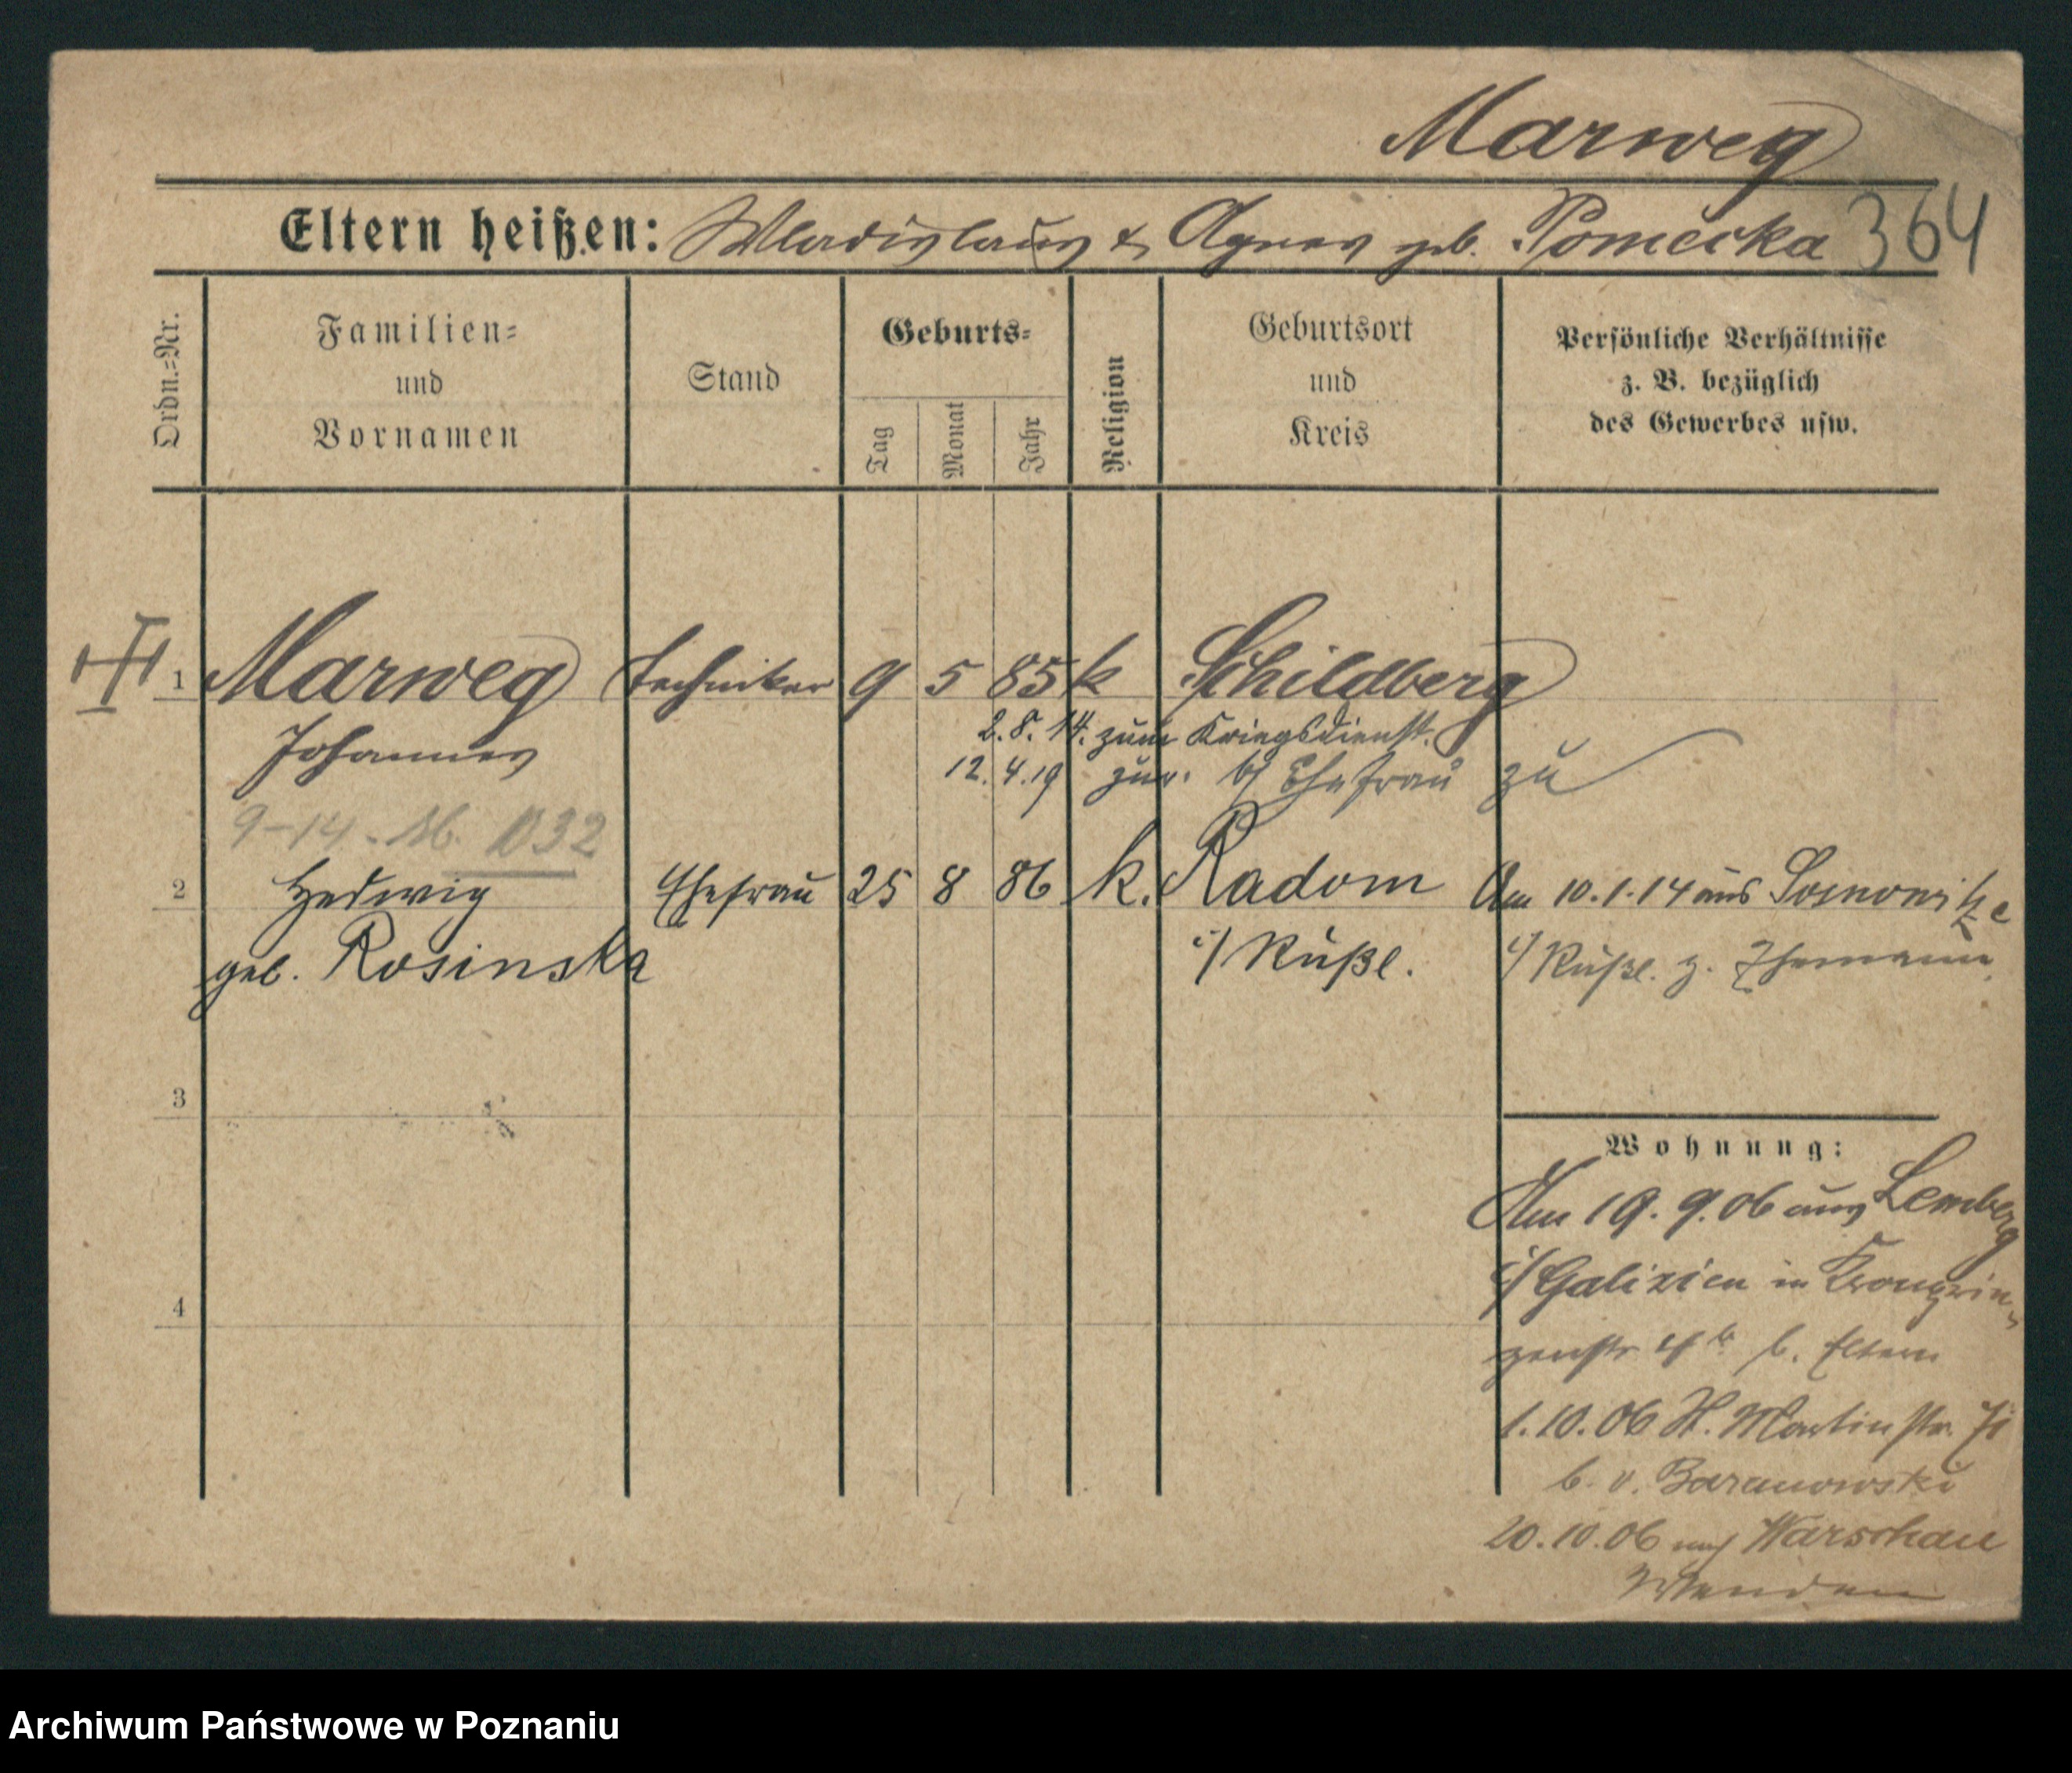 Marweg
Eltern heißen: Wladislaus & Agnes geb. Pomecka 364
Ordn.=Nr.
Familien= und Vornamen
Stand
Geburts=
Tag
Monat
Jahr
Religion
Geburtsort und Kreis
Persönliche Verhältnisse
z. B. bezüglich
des Gewerbes usw.
1 Marweg Techniker 9 5 85 k Schildberg
Johannes
2.8.14. zum Kriegsdienst.
12.4.19 zur. b/ Ehefrau zu
9-14. 1032
2 Hedwig Ehefrau 25 8 86 k. Radom Am 10.1.14 aus Sosnowitze
geb. Rosinska i/ Rußl. i/ Rußl. z. Ehemann.
3
Wohnung:
Am 19.9.06 aus Lemberg
i/ Galizien in Kronprin-
4
zenstr b. Eltern
1.10.06 St. Martinstr.
b. v. Baranowski
20.10.06 nach Warschau
Wenden
Archiwum Państwowe w Poznaniu